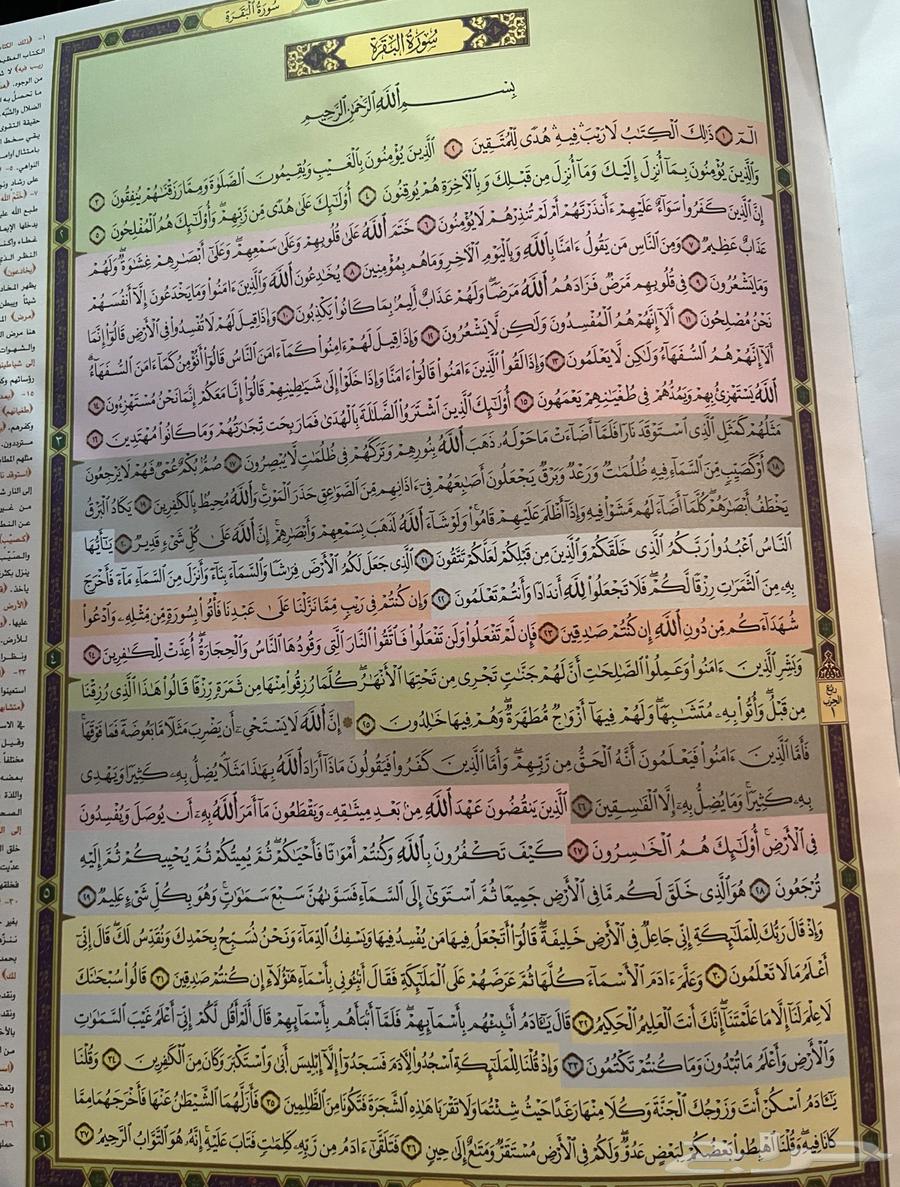 سُورَةُ الْبَقَرَةِ
سُورَةُ الْبَقَرَةِ
بِسْمِ اللَّهِ الرَّحْمَٰنِ الرَّحِيمِ
الٓمٓ ١ ذَٰلِكَ الْكِتَٰبُ لَا رَيْبَ فِيهِ هُدًى لِّلْمُتَّقِينَ ٢ الَّذِينَ يُؤْمِنُونَ بِالْغَيْبِ وَيُقِيمُونَ الصَّلَوٰةَ وَمِمَّا رَزَقْنَٰهُمْ يُنفِقُونَ ٣
وَالَّذِينَ يُؤْمِنُونَ بِمَآ أُنزِلَ إِلَيْكَ وَمَآ أُنزِلَ مِن قَبْلِكَ وَبِالْآخِرَةِ هُمْ يُوقِنُونَ ٤ أُوْلَٰٓئِكَ عَلَىٰ هُدًى مِّن رَّبِّهِمْ وَأُوْلَٰٓئِكَ هُمُ الْمُفْلِحُونَ ٥
إِنَّ الَّذِينَ كَفَرُوا سَوَآءٌ عَلَيْهِمْ ءَأَنذَرْتَهُمْ أَمْ لَمْ تُنذِرْهُمْ لَا يُؤْمِنُونَ ٦ خَتَمَ اللَّهُ عَلَىٰ قُلُوبِهِمْ وَعَلَىٰ سَمْعِهِمْ وَعَلَىٰٓ أَبْصَٰرِهِمْ غِشَٰوَةٌ وَلَهُمْ
عَذَابٌ عَظِيمٌ ٧ وَمِنَ النَّاسِ مَن يَقُولُ ءَامَنَّا بِاللَّهِ وَبِالْيَوْمِ الْآخِرِ وَمَا هُم بِمُؤْمِنِينَ ٨ يُخَٰدِعُونَ اللَّهَ وَالَّذِينَ ءَامَنُوا وَمَا يَخْدَعُونَ إِلَّآ أَنفُسَهُمْ
وَمَا يَشْعُرُونَ ٩ فِي قُلُوبِهِم مَّرَضٌ فَزَادَهُمُ اللَّهُ مَرَضًا وَلَهُمْ عَذَابٌ أَلِيمٌ بِمَا كَانُوا يَكْذِبُونَ ١٠ وَإِذَا قِيلَ لَهُمْ لَا تُفْسِدُوا فِي الْأَرْضِ قَالُوٓا إِنَّمَا
نَحْنُ مُصْلِحُونَ ١١ أَلَآ إِنَّهُمْ هُمُ الْمُفْسِدُونَ وَلَٰكِن لَّا يَشْعُرُونَ ١٢ وَإِذَا قِيلَ لَهُمْ ءَامِنُوا كَمَآ ءَامَنَ النَّاسُ قَالُوٓا أَنُؤْمِنُ كَمَآ ءَامَنَ السُّفَهَآءُ
أَلَآ إِنَّهُمْ هُمُ السُّفَهَآءُ وَلَٰكِن لَّا يَعْلَمُونَ ١٣ وَإِذَا لَقُوا الَّذِينَ ءَامَنُوا قَالُوٓا ءَامَنَّا وَإِذَا خَلَوْا إِلَىٰ شَيَٰطِينِهِمْ قَالُوٓا إِنَّا مَعَكُمْ إِنَّمَا نَحْنُ مُسْتَهْزِءُونَ ١٤
اللَّهُ يَسْتَهْزِئُ بِهِمْ وَيَمُدُّهُمْ فِي طُغْيَٰنِهِمْ يَعْمَهُونَ ١٥ أُوْلَٰٓئِكَ الَّذِينَ اشْتَرَوُا الضَّلَٰلَةَ بِالْهُدَىٰ فَمَا رَبِحَت تِّجَٰرَتُهُمْ وَمَا كَانُوا مُهْتَدِينَ ١٦
مَثَلُهُمْ كَمَثَلِ الَّذِي اسْتَوْقَدَ نَارًا فَلَمَّآ أَضَآءَتْ مَا حَوْلَهُۥ ذَهَبَ اللَّهُ بِنُورِهِمْ وَتَرَكَهُمْ فِي ظُلُمَٰتٍ لَّا يُبْصِرُونَ ١٧ صُمٌّ بُكْمٌ عُمْيٌ فَهُمْ لَا يَرْجِعُونَ
١٨ أَوْ كَصَيِّبٍ مِّنَ السَّمَآءِ فِيهِ ظُلُمَٰتٌ وَرَعْدٌ وَبَرْقٌ يَجْعَلُونَ أَصَٰبِعَهُمْ فِيٓ ءَاذَانِهِم مِّنَ الصَّوَٰعِقِ حَذَرَ الْمَوْتِ وَاللَّهُ مُحِيطٌ بِالْكَٰفِرِينَ ١٩ يَكَادُ الْبَرْقُ
يَخْطَفُ أَبْصَٰرَهُمْ كُلَّمَآ أَضَآءَ لَهُم مَّشَوْا فِيهِ وَإِذَآ أَظْلَمَ عَلَيْهِمْ قَامُوا وَلَوْ شَآءَ اللَّهُ لَذَهَبَ بِسَمْعِهِمْ وَأَبْصَٰرِهِمْ إِنَّ اللَّهَ عَلَىٰ كُلِّ شَيْءٍ قَدِيرٌ ٢٠ يَٰٓأَيُّهَا
النَّاسُ اعْبُدُوا رَبَّكُمُ الَّذِي خَلَقَكُمْ وَالَّذِينَ مِن قَبْلِكُمْ لَعَلَّكُمْ تَتَّقُونَ ٢١ الَّذِي جَعَلَ لَكُمُ الْأَرْضَ فِرَٰشًا وَالسَّمَآءَ بِنَآءً وَأَنزَلَ مِنَ السَّمَآءِ مَآءً فَأَخْرَجَ
بِهِۦ مِنَ الثَّمَرَٰتِ رِزْقًا لَّكُمْ فَلَا تَجْعَلُوا لِلَّهِ أَندَادًا وَأَنتُمْ تَعْلَمُونَ ٢٢ وَإِن كُنتُمْ فِي رَيْبٍ مِّمَّا نَزَّلْنَا عَلَىٰ عَبْدِنَا فَأْتُوا بِسُورَةٍ مِّن مِّثْلِهِۦ وَادْعُوا
شُهَدَآءَكُم مِّن دُونِ اللَّهِ إِن كُنتُمْ صَٰدِقِينَ ٢٣ فَإِن لَّمْ تَفْعَلُوا وَلَن تَفْعَلُوا فَاتَّقُوا النَّارَ الَّتِي وَقُودُهَا النَّاسُ وَالْحِجَارَةُ أُعِدَّتْ لِلْكَٰفِرِينَ ٢٤
وَبَشِّرِ الَّذِينَ ءَامَنُوا وَعَمِلُوا الصَّٰلِحَٰتِ أَنَّ لَهُمْ جَنَّٰتٍ تَجْرِي مِن تَحْتِهَا الْأَنْهَٰرُ كُلَّمَا رُزِقُوا مِنْهَا مِن ثَمَرَةٍ رِّزْقًا قَالُوا هَٰذَا الَّذِي رُزِقْنَا
مِن قَبْلُ وَأُتُوا بِهِۦ مُتَشَٰبِهًا وَلَهُمْ فِيهَآ أَزْوَٰجٌ مُّطَهَّرَةٌ وَهُمْ فِيهَا خَٰلِدُونَ ٢٥ ۞ إِنَّ اللَّهَ لَا يَسْتَحْيِۦٓ أَن يَضْرِبَ مَثَلًا مَّا بَعُوضَةً فَمَا فَوْقَهَا
فَأَمَّا الَّذِينَ ءَامَنُوا فَيَعْلَمُونَ أَنَّهُ الْحَقُّ مِن رَّبِّهِمْ وَأَمَّا الَّذِينَ كَفَرُوا فَيَقُولُونَ مَاذَآ أَرَادَ اللَّهُ بِهَٰذَا مَثَلًا يُضِلُّ بِهِۦ كَثِيرًا وَيَهْدِي
بِهِۦ كَثِيرًا وَمَا يُضِلُّ بِهِۦٓ إِلَّا الْفَٰسِقِينَ ٢٦ الَّذِينَ يَنقُضُونَ عَهْدَ اللَّهِ مِنۢ بَعْدِ مِيثَٰقِهِۦ وَيَقْطَعُونَ مَآ أَمَرَ اللَّهُ بِهِۦٓ أَن يُوصَلَ وَيُفْسِدُونَ
فِي الْأَرْضِ أُوْلَٰٓئِكَ هُمُ الْخَٰسِرُونَ ٢٧ كَيْفَ تَكْفُرُونَ بِاللَّهِ وَكُنتُمْ أَمْوَٰتًا فَأَحْيَٰكُمْ ثُمَّ يُمِيتُكُمْ ثُمَّ يُحْيِيكُمْ ثُمَّ إِلَيْهِ
تُرْجَعُونَ ٢٨ هُوَ الَّذِي خَلَقَ لَكُم مَّا فِي الْأَرْضِ جَمِيعًا ثُمَّ اسْتَوَىٰٓ إِلَى السَّمَآءِ فَسَوَّىٰهُنَّ سَبْعَ سَمَٰوَٰتٍ وَهُوَ بِكُلِّ شَيْءٍ عَلِيمٌ ٢٩
وَإِذْ قَالَ رَبُّكَ لِلْمَلَٰٓئِكَةِ إِنِّي جَاعِلٌ فِي الْأَرْضِ خَلِيفَةً قَالُوٓا أَتَجْعَلُ فِيهَا مَن يُفْسِدُ فِيهَا وَيَسْفِكُ الدِّمَآءَ وَنَحْنُ نُسَبِّحُ بِحَمْدِكَ وَنُقَدِّسُ لَكَ قَالَ إِنِّيٓ
أَعْلَمُ مَا لَا تَعْلَمُونَ ٣٠ وَعَلَّمَ ءَادَمَ الْأَسْمَآءَ كُلَّهَا ثُمَّ عَرَضَهُمْ عَلَى الْمَلَٰٓئِكَةِ فَقَالَ أَنۢبِـُٔونِي بِأَسْمَآءِ هَٰٓؤُلَآءِ إِن كُنتُمْ صَٰدِقِينَ ٣١ قَالُوا سُبْحَٰنَكَ
لَا عِلْمَ لَنَآ إِلَّا مَا عَلَّمْتَنَآ إِنَّكَ أَنتَ الْعَلِيمُ الْحَكِيمُ ٣٢ قَالَ يَٰٓـَٔادَمُ أَنۢبِئْهُم بِأَسْمَآئِهِمْ فَلَمَّآ أَنۢبَأَهُم بِأَسْمَآئِهِمْ قَالَ أَلَمْ أَقُل لَّكُمْ إِنِّيٓ أَعْلَمُ غَيْبَ السَّمَٰوَٰتِ
وَالْأَرْضِ وَأَعْلَمُ مَا تُبْدُونَ وَمَا كُنتُمْ تَكْتُمُونَ ٣٣ وَإِذْ قُلْنَا لِلْمَلَٰٓئِكَةِ اسْجُدُوا لِـَٔادَمَ فَسَجَدُوٓا إِلَّآ إِبْلِيسَ أَبَىٰ وَاسْتَكْبَرَ وَكَانَ مِنَ الْكَٰفِرِينَ ٣٤ وَقُلْنَا
يَٰٓـَٔادَمُ اسْكُنْ أَنتَ وَزَوْجُكَ الْجَنَّةَ وَكُلَا مِنْهَا رَغَدًا حَيْثُ شِئْتُمَا وَلَا تَقْرَبَا هَٰذِهِ الشَّجَرَةَ فَتَكُونَا مِنَ الظَّٰلِمِينَ ٣٥ فَأَزَلَّهُمَا الشَّيْطَٰنُ عَنْهَا فَأَخْرَجَهُمَا مِمَّا
كَانَا فِيهِ وَقُلْنَا اهْبِطُوا بَعْضُكُمْ لِبَعْضٍ عَدُوٌّ وَلَكُمْ فِي الْأَرْضِ مُسْتَقَرٌّ وَمَتَٰعٌ إِلَىٰ حِينٍ ٣٦ فَتَلَقَّىٰٓ ءَادَمُ مِن رَّبِّهِۦ كَلِمَٰتٍ فَتَابَ عَلَيْهِ إِنَّهُۥ هُوَ التَّوَّابُ الرَّحِيمُ ٣٧
ربع
الحزب
١
٢
٣
٤
٥
٦